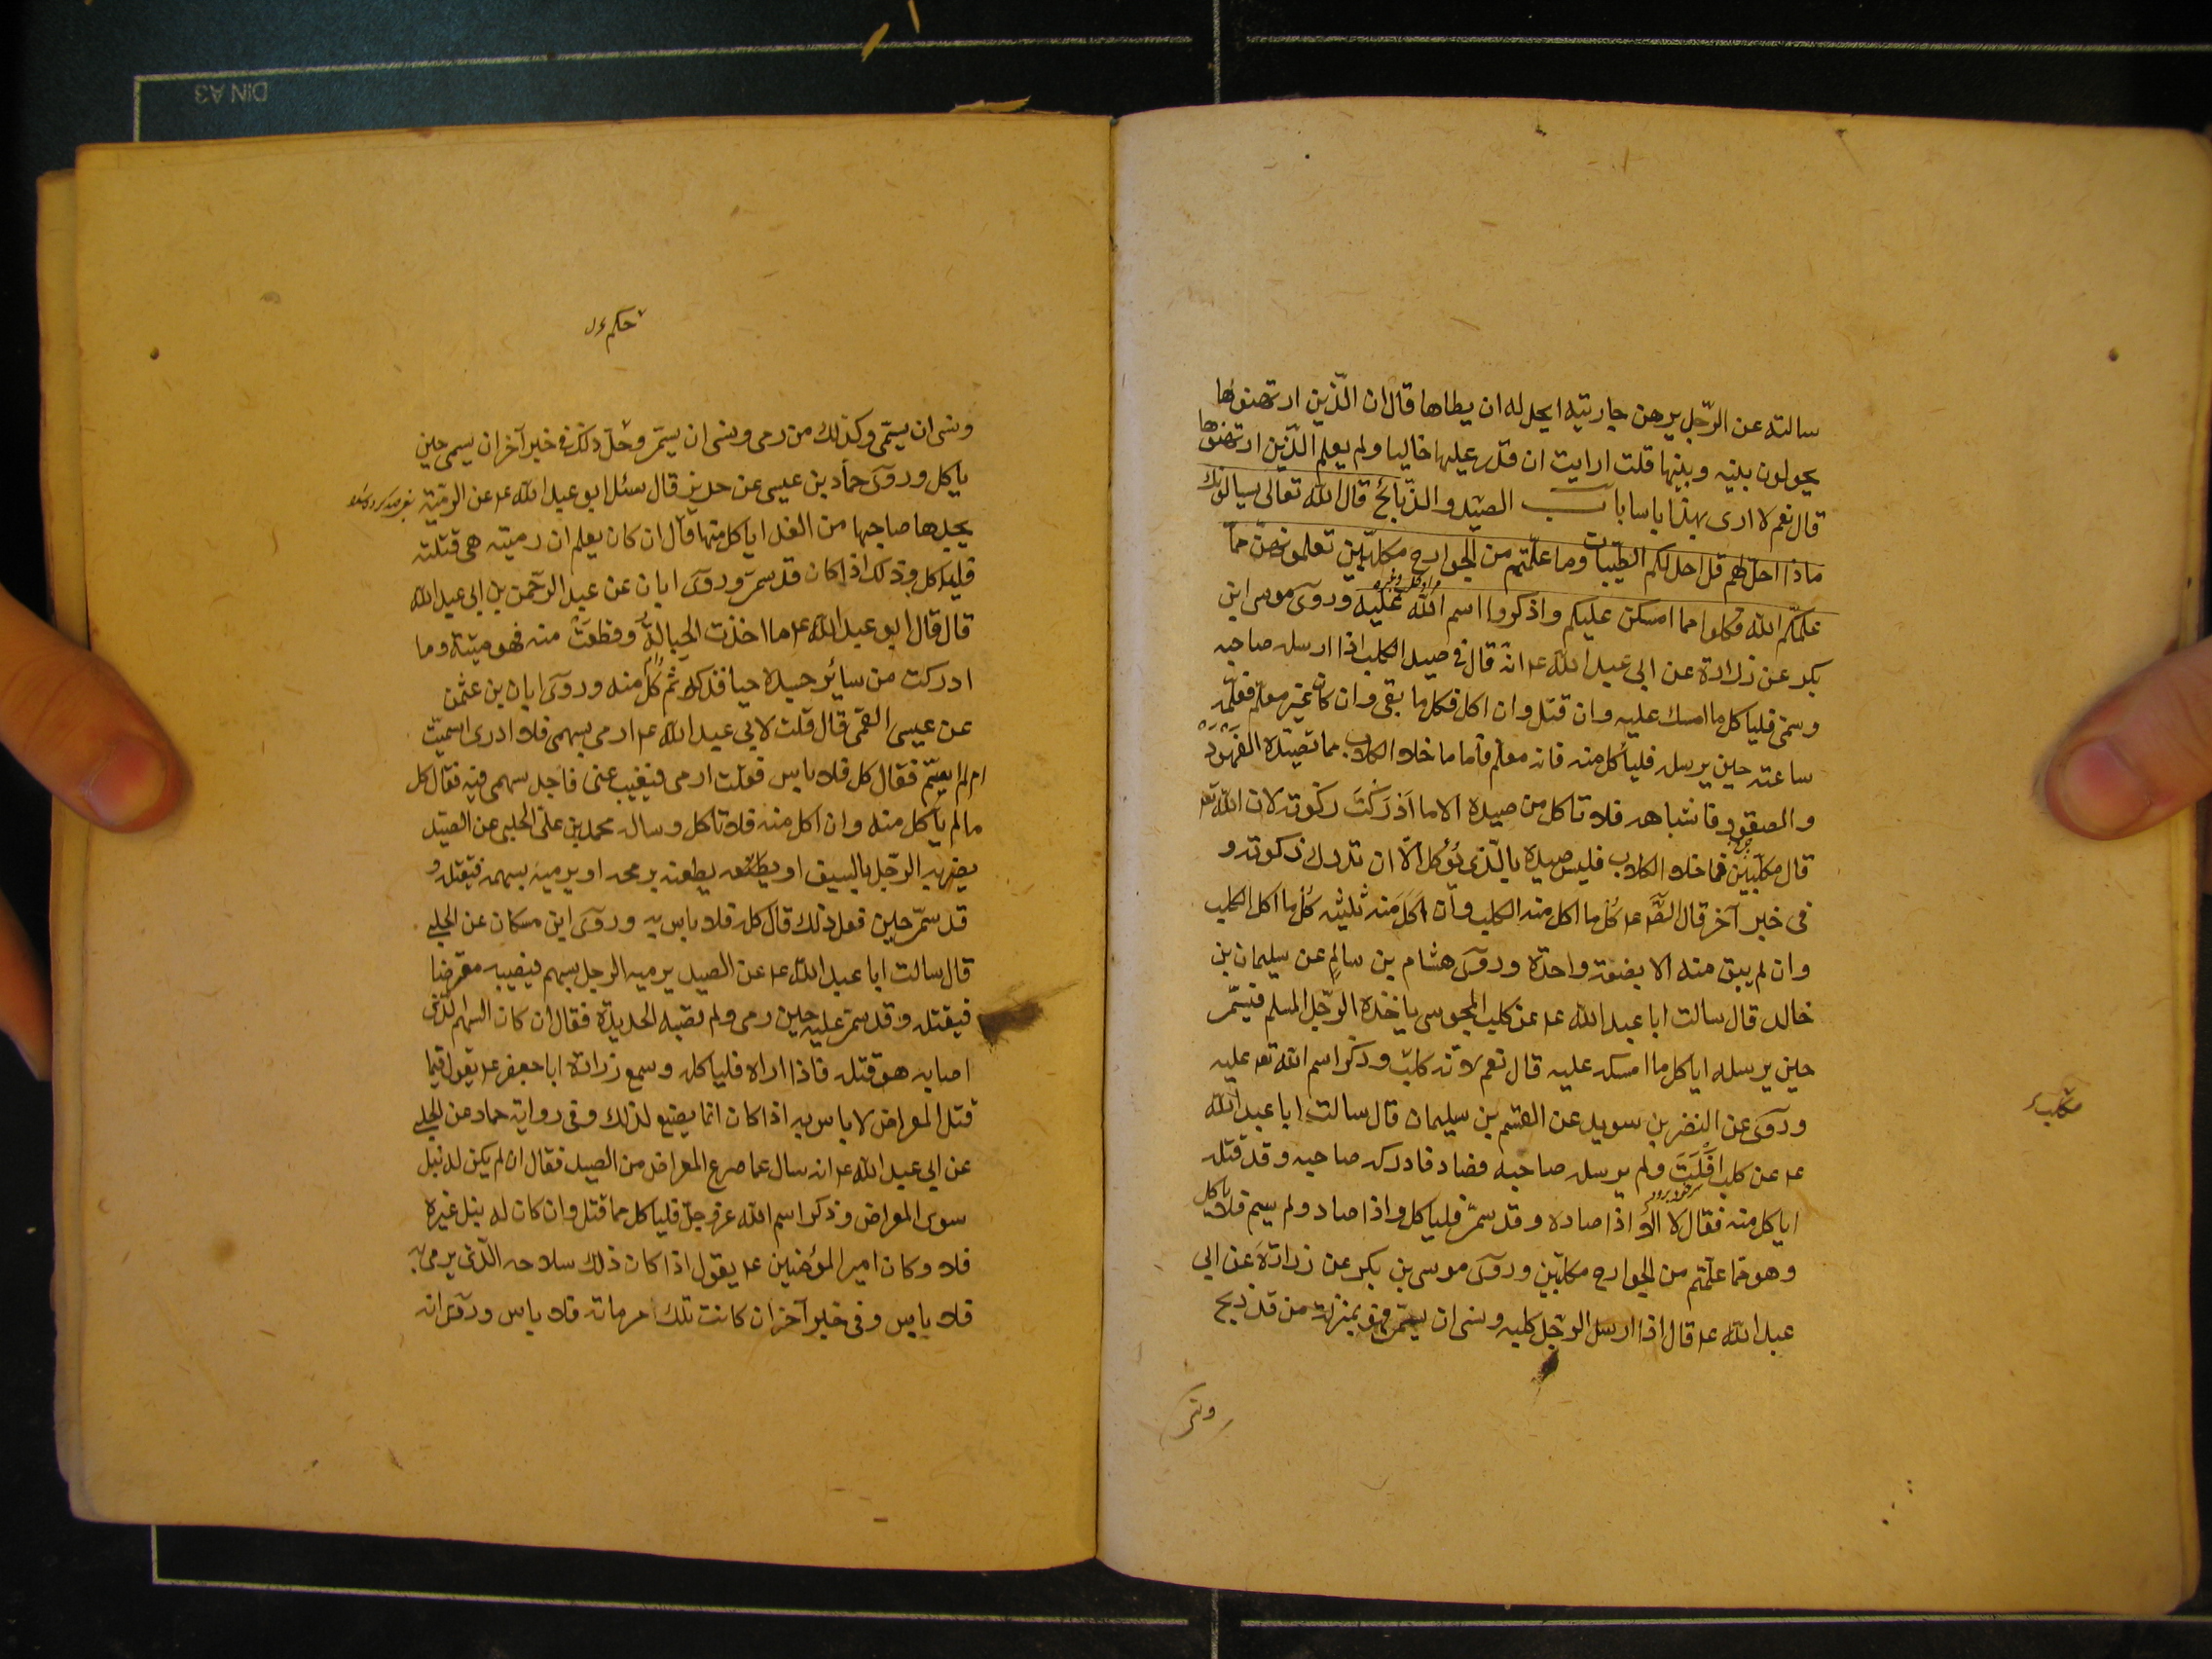 سالته عن الرّجل يرهن جاريته ايحل له ان يطاها قال ان الّذين ارتهنوها
يحولون بينه وبينها قلت ارايت ان قدر عليها خاليا ولم يعلم الّذين ارتهنوها
قال نعم لا ارى بهذا باسا باب الصّيد والذّبائح قال الله تعالى يسالونك
ماذا احلّ لهم قل احل لكم الطّيّبات وما علّمتم من الجوارح مكلّبين تعلمونهنّ ممّا
علّمكم الله فكلوا مما امسكن عليكم واذكروا اسم الله عليه وروى موسى ابن
بكر عن زرارة عن ابى عبد الله ع انّه قال فى صيد الكلب اذا ارسله صاحبه
وسمى فلياكل ما امسك عليه وان قتل وان اكل فكل ما بقى وان كان غير معلّم فعلّمه
ساعته حين يرسله فلياكل منه فانه معلّم فاما ما خلا الكلاب مما تصيده الفهود
والصقور واشباهه فلا تاكل من صيده الا ما ادركت ذكوته لان الله تع
قال مكلّبين فما خلا الكلاب فليس صيده بالّذى يؤكل الّا ان تدرك ذكوته و
فى خبر آخر قال الصّ ع كل ما اكل منه الكلب وان اكل منه ثلثيه كل ما اكل الكلب
وان لم يبق منه الا بضعة واحدة وروى هشام بن سالم عن سليمان بن
خالد قال سالت ابا عبد الله ع عن كلب المجوسى ياخذه الرّجل المسلم فيسمّى
حين يرسله اياكل ما امسك عليه قال نعم لانّه كلب وذكر اسم الله تع عليه
وروى عن النضر بن سويد عن القسم بن سليمان قال سالت ابا عبد الله
ع عن كلب افلت ولم يرسله صاحبه فصاد فادركه صاحبه وقد قتله
اياكل منه فقال لا اذا صاده وقد سمّى فلياكل واذا صاد ولم يسم فلا ياكل
وهو ممّا علّمتم من الجوارح مكلّبين وروى موسى بن بكر عن زرارة عن ابى
عبد الله ع قال اذا ارسل الرّجل كلبه ونسى ان يسمّى فهو بمنزلة من قد ذبح
مكلب
ونسى
حكم
ونسى ان يسمّى وكذلك من رمى ونسى ان يسمّى وحلّ ذلك فى خبر آخر ان يسمى حين
ياكل وروى حمّاد بن عيسى عن حريز قال سئل ابو عبد الله ع عن الرميّة
يجدها صاحبها من الغد اياكل منها قال ان كان يعلم ان رميته هى قتلته
فلياكل وذلك اذا كان قد سمّى وروى ابان عن عبد الرّحمن بن ابى عبد الله
قال قال ابو عبد الله ع ما اخذت الحبالة وقطعت منه فهو ميتة وما
ادركت من سائر جسده حيا فذكّه ثم كل منه وروى ابان بن عثمن
عن عيسى القمى قال قلت لابى عبد الله ع ارمى بسهمى فلا ادرى اسميت
ام لم اسمّ فقال كل فلا باس فقلت ارمى فيغيب عنى فاجد سهمى فيه فقال كل
ما لم ياكل منه وان اكل منه فلا تاكل وساله محمد بن على الحلبى عن الصّيد
يضربه الرّجل بالسيف او يطعنه برمحه او يرميه بسهمه فيقتله و
قد سمّى حين فعل ذلك قال كل فلا باس به وروى ابن مسكان عن الحلبى
قال سالت ابا عبد الله ع عن الصيد يرميه الرجل بسهم فيصيبه معترضا
فيقتله وقد سمّى عليه حين رمى ولم تصبه الحديدة فقال ان كان السهم الّذى
اصابه هو قتله فاذا اراه فلياكل وسمع زرارة ابا جعفر ع يقول فيما
قتل المعراض لا باس به اذا كان انّما يصنع لذلك وفى رواية حماد عن الحلبى
عن ابى عبد الله ع انه سال عما صرع المعراض من الصيد فقال ان لم يكن له نبل
سوى المعراض وذكر اسم الله عزّ وجلّ فلياكل ممّا قتل وان كان له نبل غيره
فلا وكان امير المؤمنين ع يقول اذا كان ذلك سلاحه الّذى يرمى به
فلا باس وفى خبر آخر ان كانت تلك مرماته فلا باس وروى انه